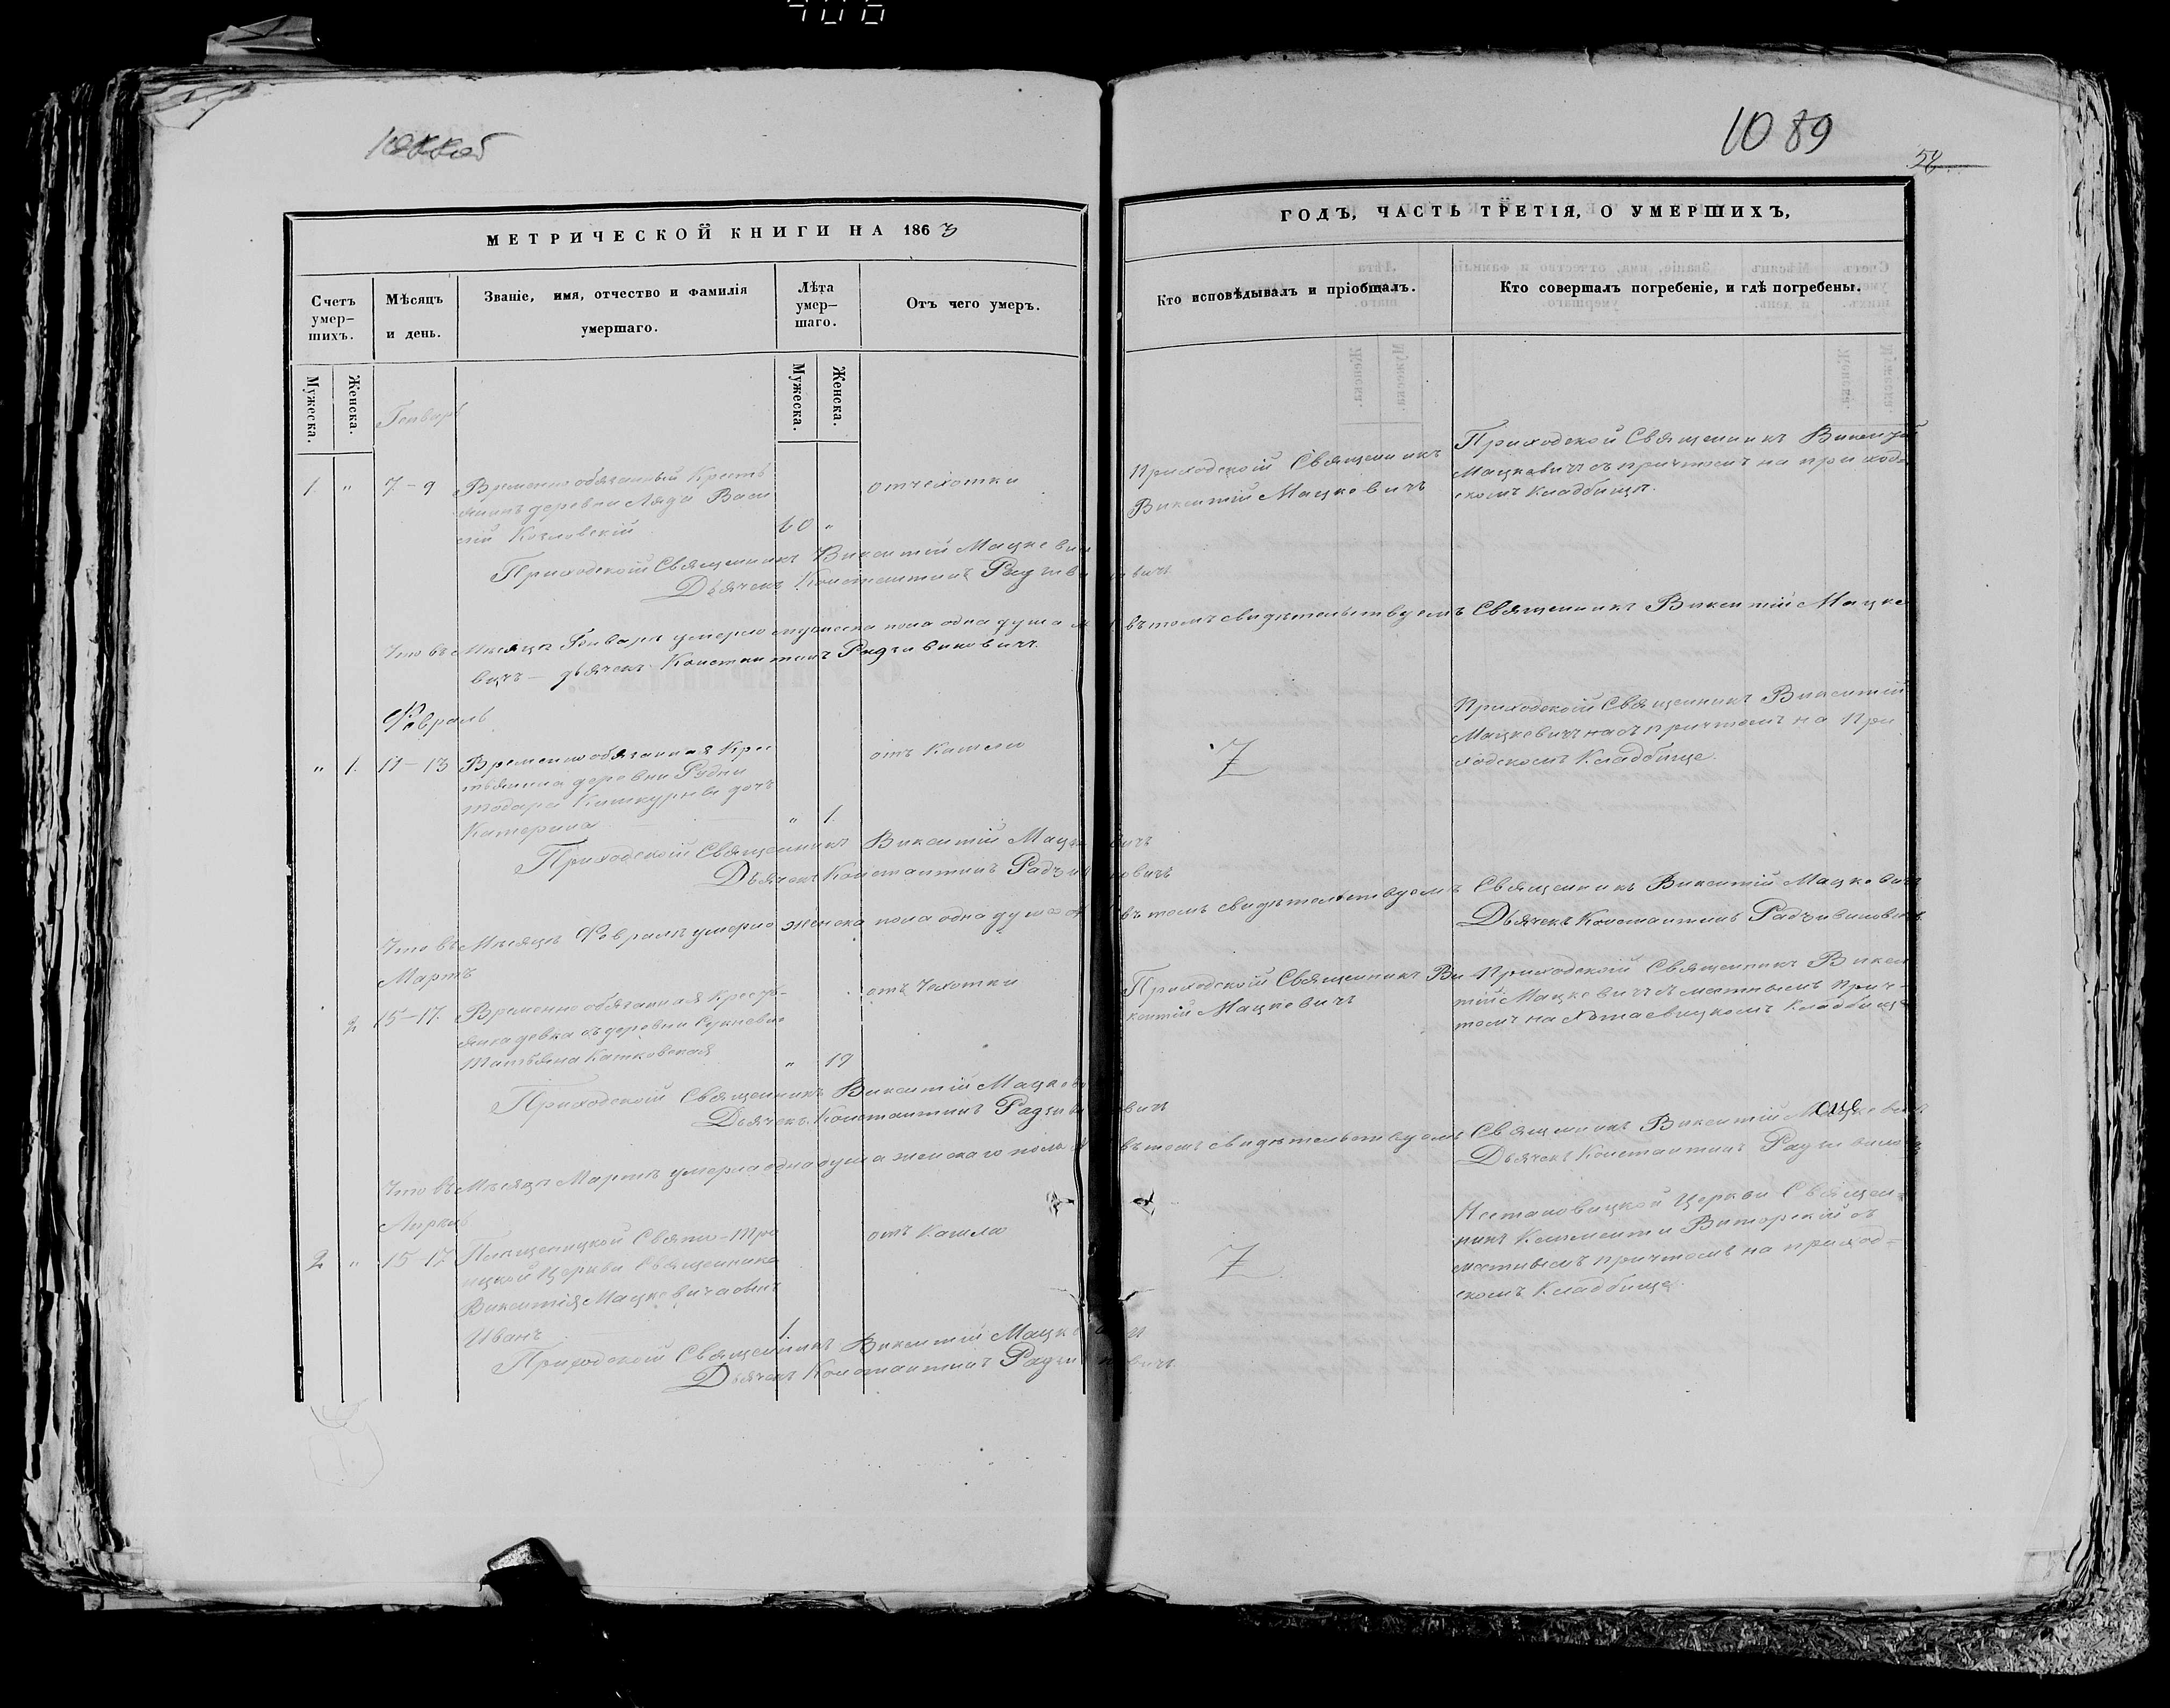 1089
58
МЕТРИЧЕСКОЙ КНИГИ НА 1863
ГОДЪ, ЧАСТЬ ТРЕТІЯ, О УМЕРШИХЪ,
Счетъ умер-шихъ.
Мужеска.
Женска.
Мѣсяцъ и день.
Званіе, имя, отчество и фамилія умершаго.
Лѣта умер-шаго.
Мужеска.
Женска.
Отъ чего умеръ.
Кто исповѣдывалъ и пріобщалъ.
Кто совершалъ погребеніе, и гдѣ погребены.
Генварь
1. " 7-9 Временно обязанный Кресть
янинъ деревни Ляда Васи
лій Козловскій
60 "
от чехотки
Приходскій Священникъ
Викентій Мацкевичъ
Приходской Священникъ Викентій
Мацкевичъ съ причтомъ на приход
скомъ Кладбищѣ.
Приходскій Священникъ Викентій Мацкевичъ
Дьячекъ Константинъ Радзивиновичъ
Что въ Мѣсяцѣ Генварѣ умерло мужеска пола одна душа въ томъ свидѣтельствуемъ Священникъ Викентій Мацке
вичъ - дьячекъ Константинъ Радзивиновичъ.
Февраль
" 1. 11-13 Временно обязанная Крес
тьянина деревни Рудни
Катерина
" 1.
отъ Кашля
Приходской Священникъ Викентій
Мацкевичъ съ причтомъ на При
ходскомъ Кладбище.
Приходскій Священникъ Викентій Мацкевичъ
Дьячекъ Константинъ Радзивиновичъ
Что въ Мѣсяцѣ Февралѣ умерло женска пола одна душа въ томъ свидѣтельствуемъ Священникъ Викентій Мацкевичъ
Дьячекъ Константинъ Радзивиновичъ
Мартъ
2 15-17. Временно обязанная Кресть-
янка девка съ деревни
Татьяна Катковская
" 19
отъ Чехотки
Приходской Священникъ Ви
кентій Мацкевичъ
Приходской Священникъ Викен
тій Мацкевичъ съ местнымъ Прич-
томъ на Кладбище
Приходской Священникъ Викентій Мацкевичъ
Дьячекъ Константинъ Радзивиновичъ
Что въ Мѣсяцѣ Мартѣ умерла одна душа женскаго пола въ томъ свидѣтельствуемъ Священникъ Викентій Мацкевичъ
Дьячекъ Константинъ Радзивиновичъ
Апрель
2 " 15-17 Свято-Тро
ицкой Церкви Священника
Викентія Мацкевича сынъ
Иванъ
1.
отъ Кашля
Церкви Священ-
никъ съ
местнымъ причтомъ на приход-
скомъ Кладбище.
Приходской Священникъ Викентій Мацкевичъ
Дьячекъ Константинъ Радзивиновичъ